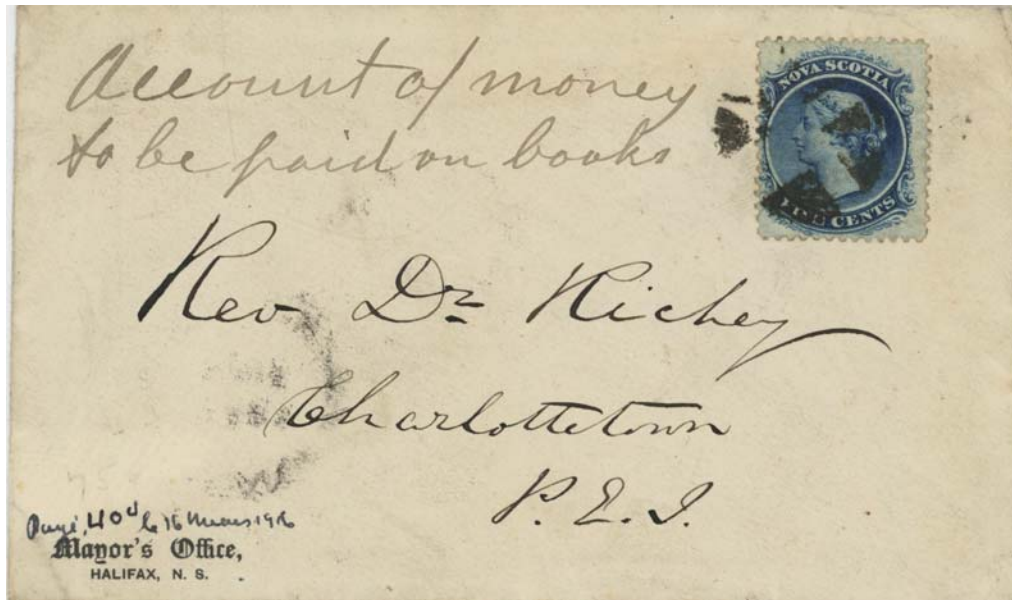 Account of money
to be paid on books
NOVA SCOTIA
CENTS
Rev Dr Richey
Charlottetown
P. E. I.
Payé, 40d le 16 Mars 1916
Mayor's Office,
HALIFAX, N. S.